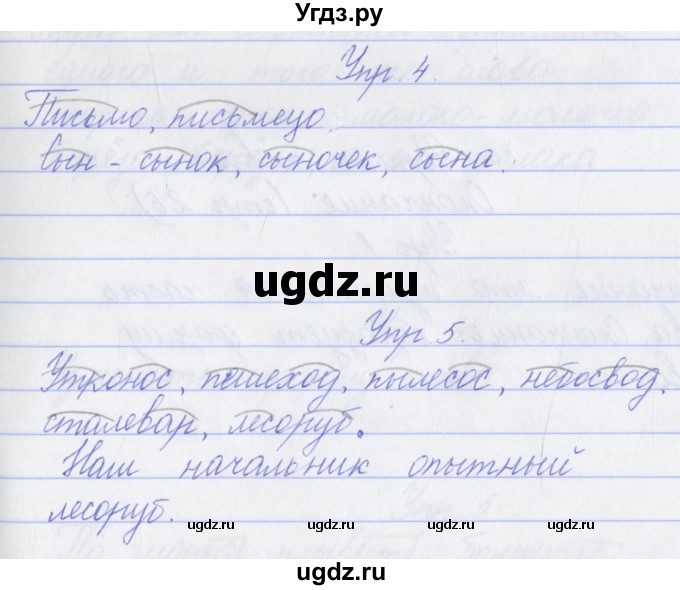 Угдз.ру
Упр. 4.
Письмо, письмецо.
Сын - сынок, сыночек, сына.
ugdz.ru
Упр 5.
Утконос, пешеход, пылесос, небосвод,
сталевар, лесоруб.
Наш начальник опытный
лесоруб.
ugdz.ru ugdz.ru ugdz.ru ugdz.ru
ugdz.ru